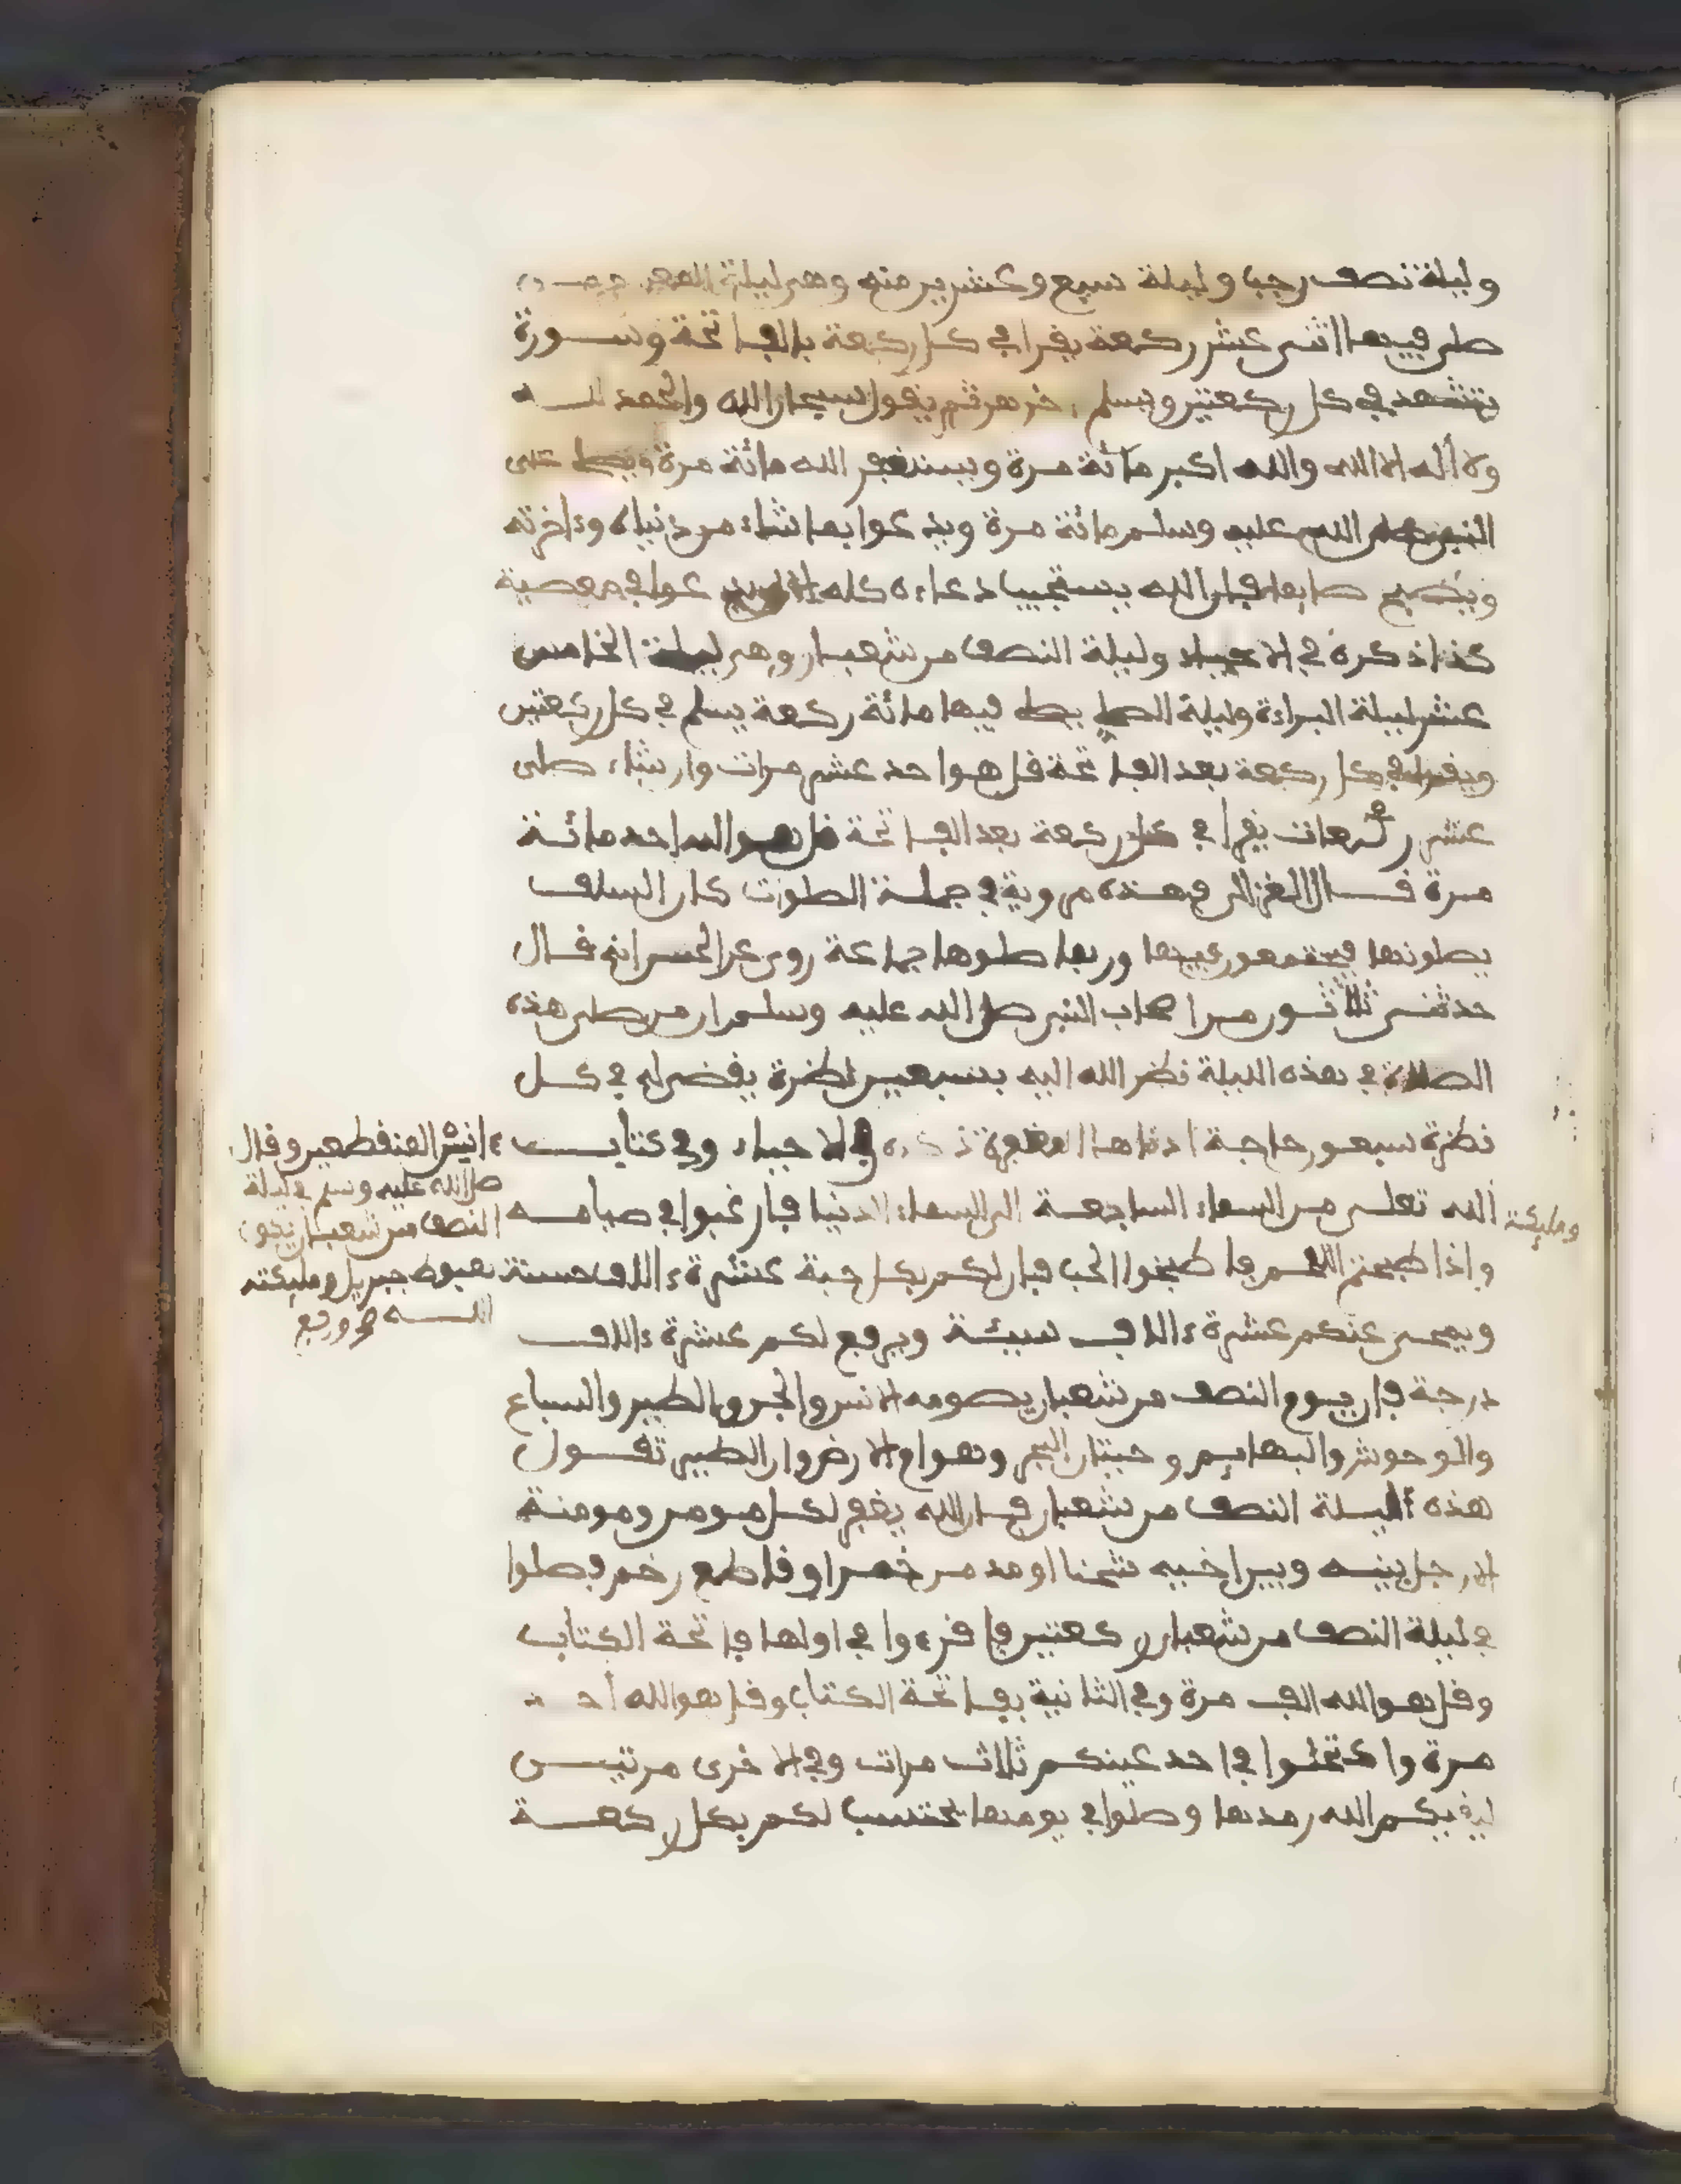 وليلة نصف رجب وليلة سبع وعشرين منه وهي ليلة المعراج
صلى فيها اثنى عشر ركعة يقرا في كل ركعة بالفاتحة وسورة
يتشهد في كل ركعتين ويسلم ثم يقول سبحان الله والحمد لله
ولا اله الا الله والله اكبر مائة مرة ويستغفر الله مائة مرة ويصلى على
النبي صلى الله عليه وسلم مائة مرة ويدعوا بما شاء من دنياه وءاخرته
ويصبح صايما فان الله يستجيب دعاءه كله الا ان يدعوا في معصية
كذا ذكره في الاحياء وليلة النصف من شعبان وهي ليلة الخامس
عشر ليلة البراءة وليلة الصك يصلى فيها مائة ركعة يسلم في كل ركعتين
ويقرا في كل ركعة بعد الفاتحة قل هو احد عشر مرات وان شاء صلى
عشر ركعات يقرا في كل ركعة بعد الفاتحة قل هو الله احد مائة
مرة قال الغزالي فهذه مروية في جملة الصلوت كان السلف
يصلونها فيجتمعون فيها وربما صلوها جماعة روى عن الحسن انه قال
حدثنى ثلاثون من اصحاب النبي صلى الله عليه وسلم ان من صلى هذه
الصلاة في هذه الليلة نظر الله اليه بسبعين نظرة يقضى له في كل
نظرة سبعون حاجة ادناها المغفرة ذكره في الاحياء وفي كتاب
ءانيس المنقطعين وقال
صلى الله عليه وسلم في ليلة
النصف من شعبان يكون
هبوط جبريل ومليكته
الله تعلى من السماء السابعة الى السماء الدنيا فارغبوا في صيامه
ومليكة
واذا طبختم اللحم فاطبخوا الحب فان لكم بكل حبة عشرة ءالاف حسنة
ويمحى عنكم عشرة ءالاف سيئة ويرفع لكم عشرة ءالاف
درجة فان يوم النصف من شعبان يصومه الانس والجن والطير والسباع
والوحوش والبهايم وحيتان البحر وهوام الارض وان الطير تقول
هذه ليلة النصف من شعبان فان الله يغفر لكل مومن ومومنة
الا رجل بينه وبين اخيه شحنا او مدمن خمر او قاطع رحم فصلوا
في ليلة النصف من شعبان ركعتين فاقرءوا في اولها فاتحة الكتاب
وقل هو الله الف مرة وفي الثانية بفاتحة الكتاب وقل هو الله احد
مرة واكتحلوا في احد عينكم ثلاث مرات وفي الاخرى مرتين
ليفيكم الله رمدها وصلوا في يومها تحتسب لكم بكل ركعة